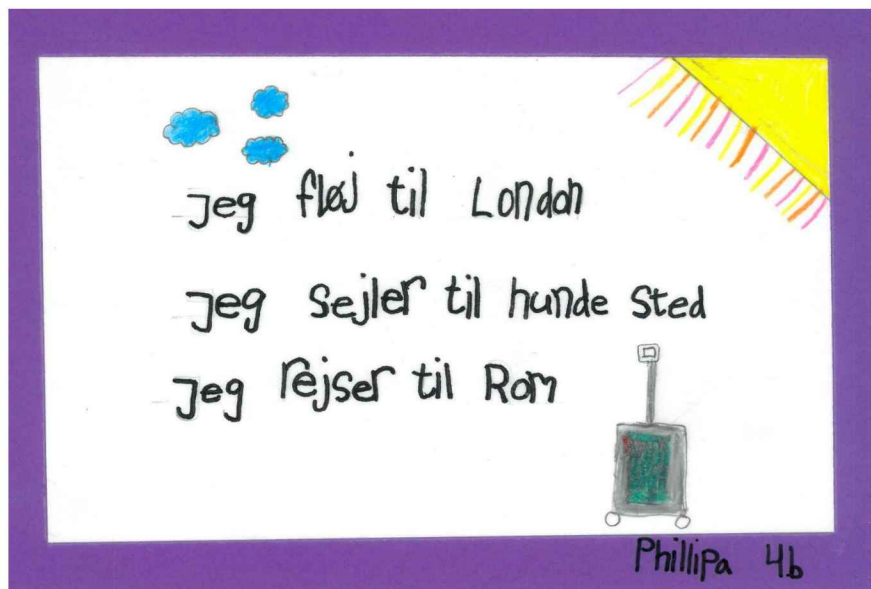 Jeg fløj til London
Jeg sejler til hunde sted
Jeg rejser til Rom
Phillipa 4b